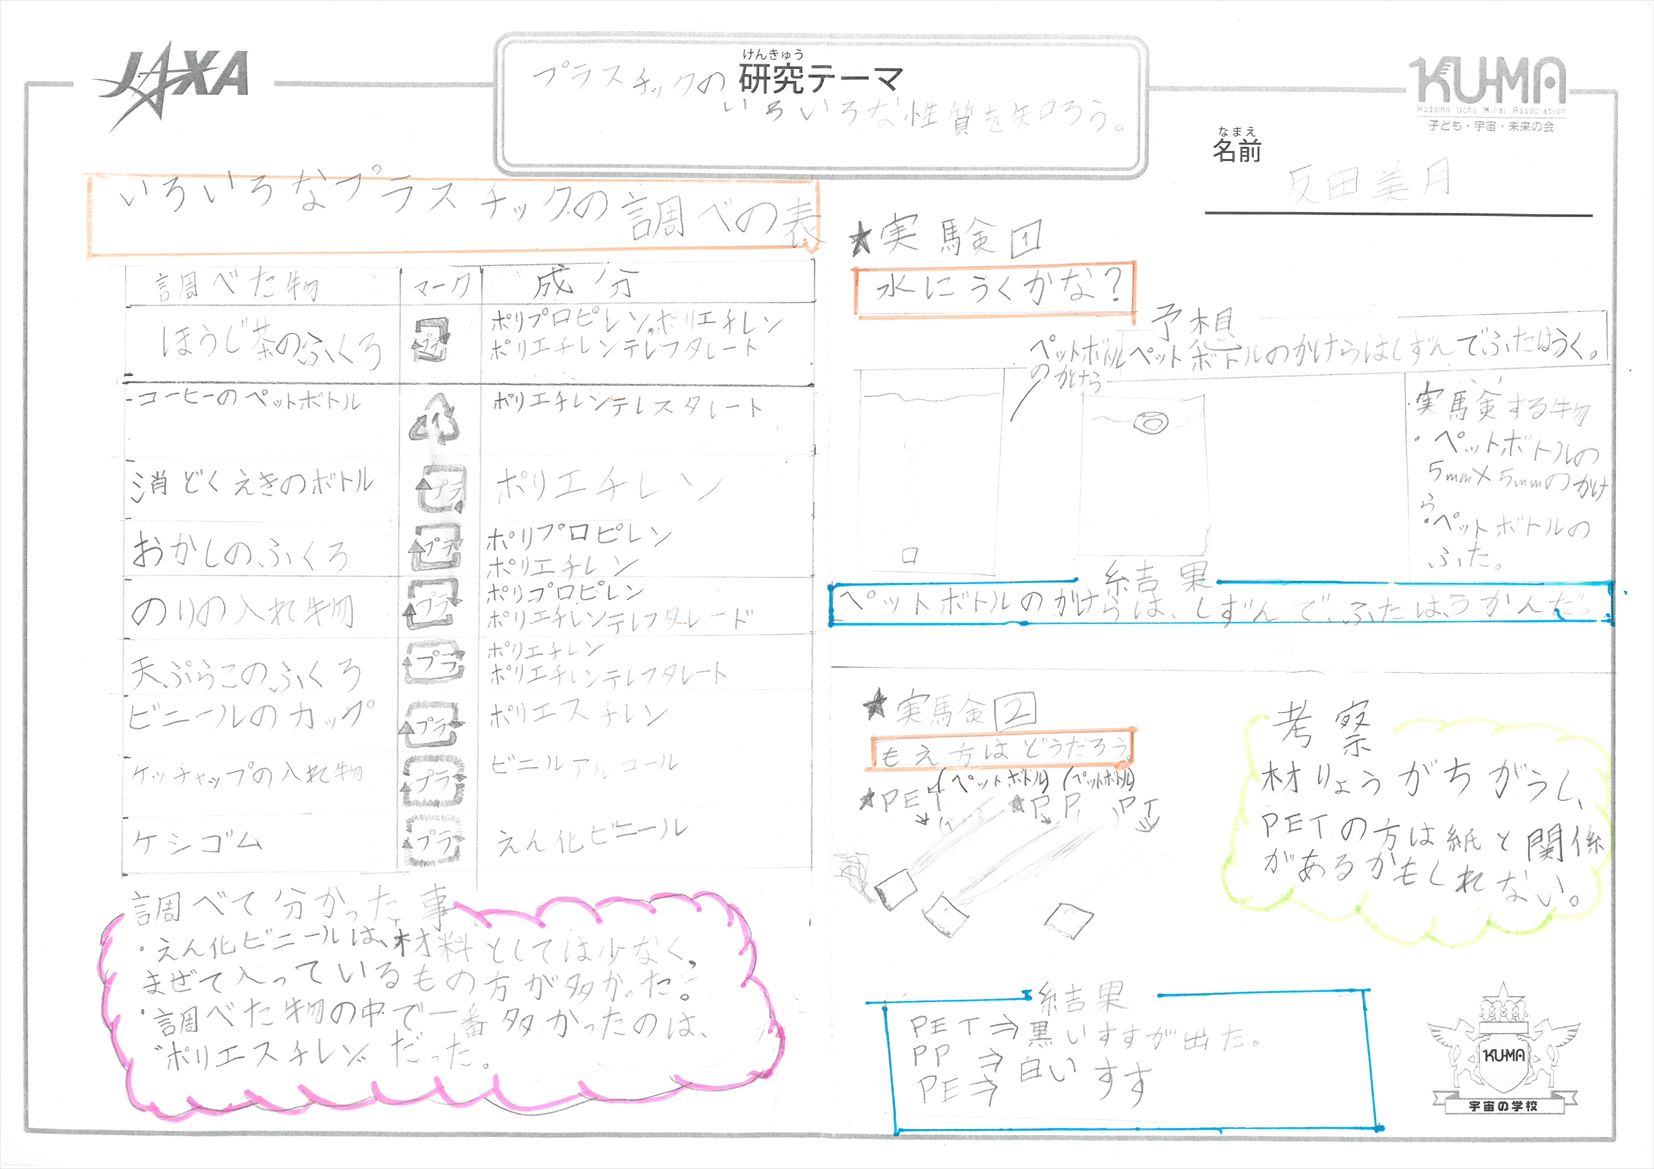 JAXA
けんきゅう
研究テーマ
プラスチックの
いろいろな性質を知ろう。
KU-MA
Kodomo Uchu Mirai Association
子ども・宇宙・未来の会
なまえ
名前
反田美月
いろいろなプラスチックの調べの表
調べた物 マーク 成分
ほうじ茶のふくろ プラ ポリプロピレン。ポリエチレン
ポリエチレンテレフタレート
コーヒーのペットボトル 1 ポリエチレンテレスタレート
消どくえきのボトル プラ ポリエチレン
おかしのふくろ プラ ポリプロピレン
ポリエチレン
のりの入れ物 プラ ポリプロピレン
ポリエチレンテレフタレード
天ぷらこのふくろ プラ ポリエチレン
ポリエチレンテレフタレート
ビニールのカップ プラ ポリエスチレン
ケッチャップの入れ物 プラ ビニルアルコール
ケシゴム プラ えん化ビニール
調べて分かった事
・えん化ビニールは、材料としては少なく、
まぜて入っているもの方が多かった。
・調べた物の中で一番多かったのは、
"ポリエスチレン"だった。
★実験1
水にうくかな?
予想
ペットボトルのかけらはしずんでふたはうく。
ペットボトル
のかけら
実験する物
・ペットボトルの
5mm×5mmのかけ
ら
・ペットボトルの
ふた。
結果
ペットボトルのかけらは、しずんで、ふたは、うかんだ。
★実験2
もえ方はどうだろう
(ペットボトル) (ペットボトル)
★PET ★P.P. PE
考察
材りょうがちがうし、
PETの方は紙と関係
があるかもしれない。
結果
PET⇒黒いすすが出た。
PP⇒
PE⇒白いすす
KU-MA
宇宙の学校